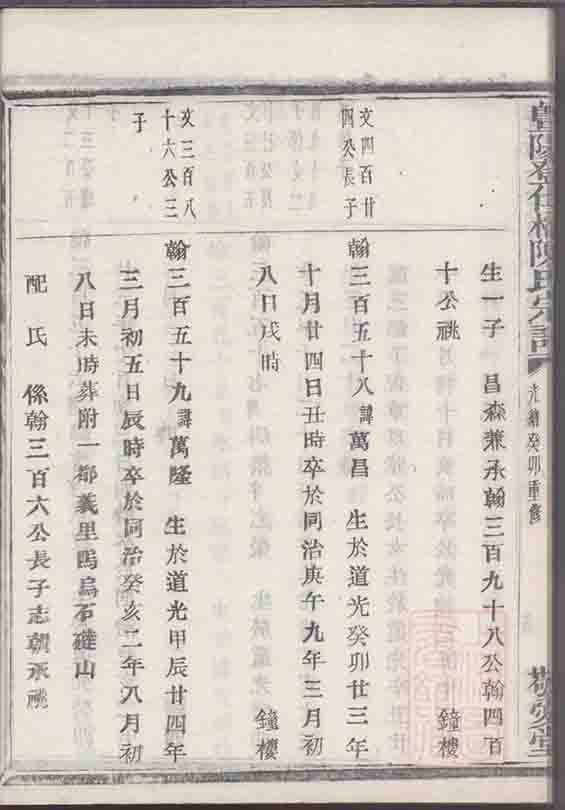 陽登仕橋陳氏宗譜
光緒癸卯重修
敬愛堂
生一子 昌森兼承翰三百九十八公翰四百
十公祧 鐘樓
文四百廿
四公長子
翰三百五十八諱萬昌 生於道光癸卯廿三年
十月廿四日丑時卒於同治庚午九年三月初
八日戌時 鐘樓
文三百八
十六公三
子
翰三百五十九諱萬隆 生於道光甲辰廿四年
三月初五日辰時卒於同治癸亥二年八月初
八日未時葬附一都義里塢烏石磋山
配氏 係翰三百六公長子志朝承祧